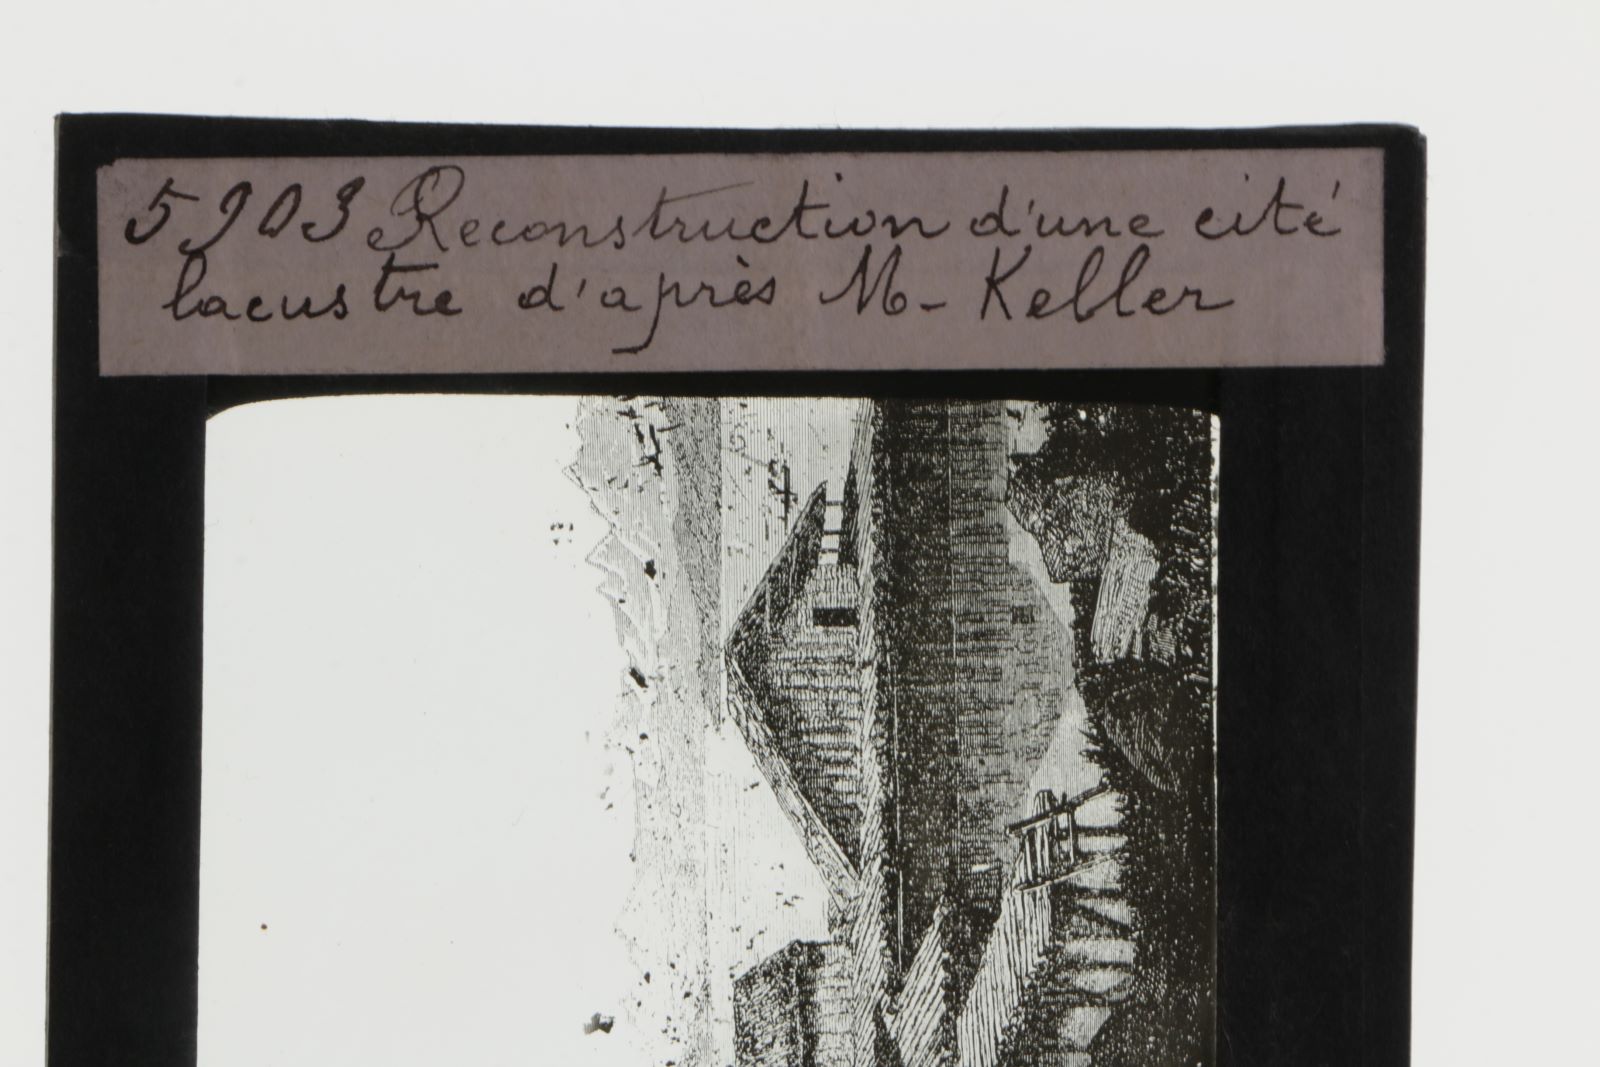 5903 Reconstruction d'une cité
lacustre d'après M- Keller